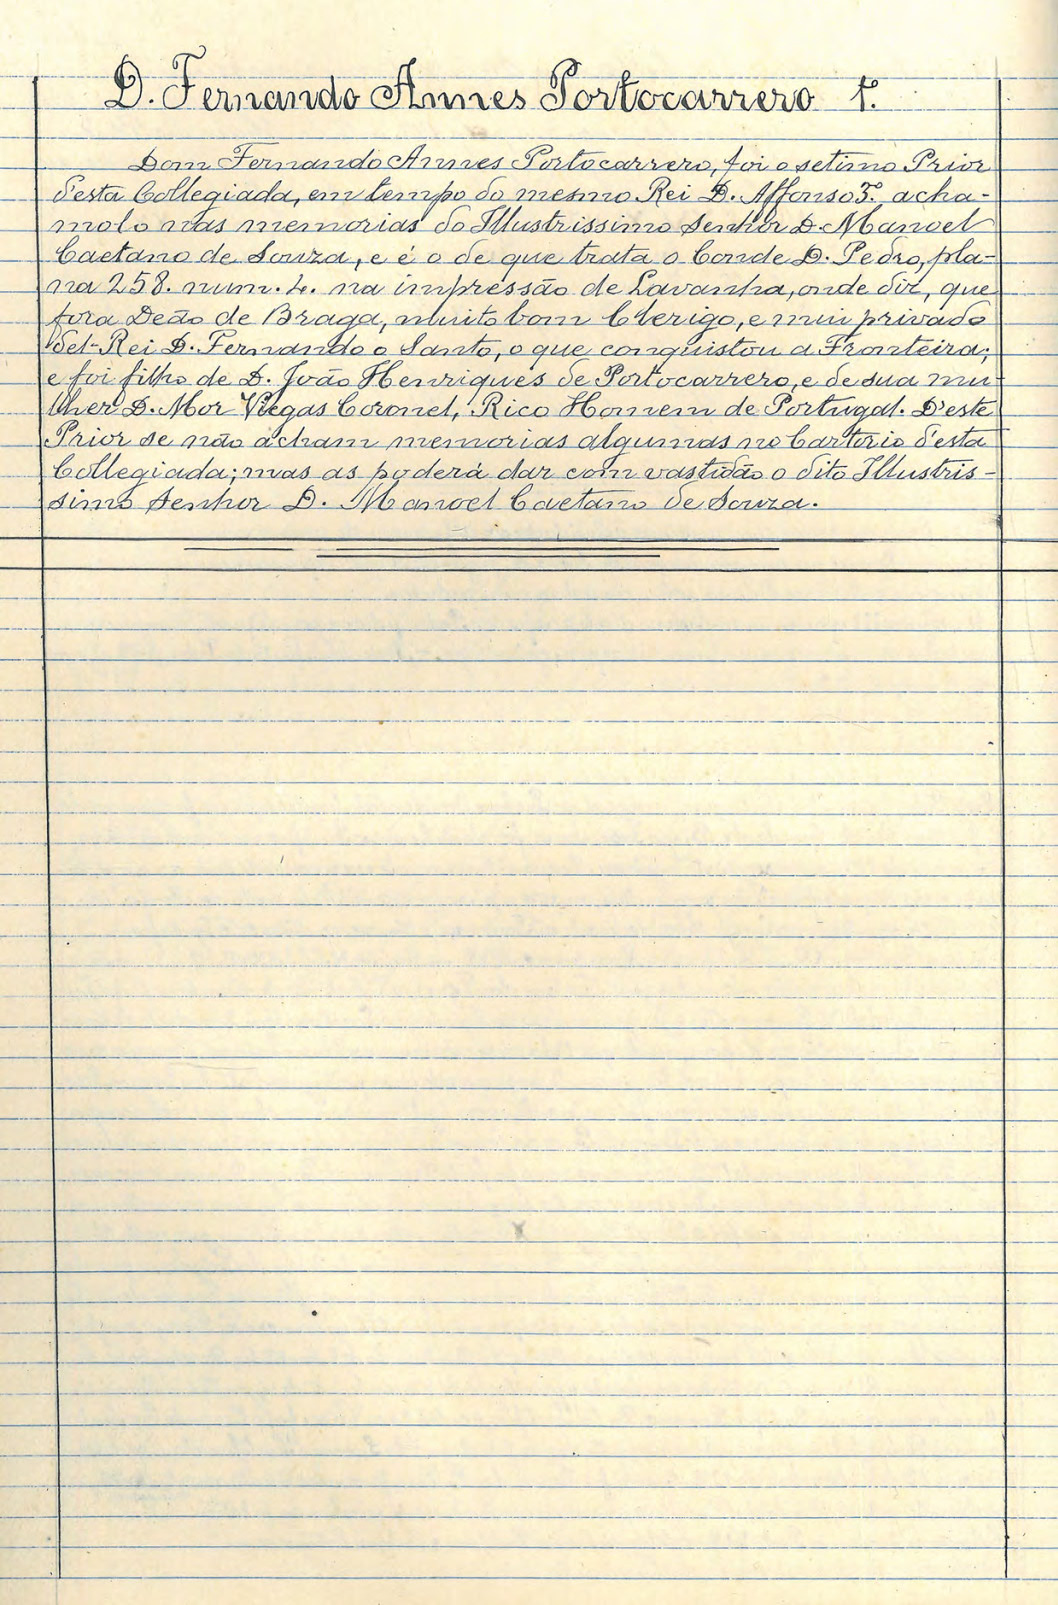 D. Fernando Annes Portocarrero 1º.
Dom Fernando Annes Portocarrero, foi o setimo Prior
d'esta Collegiada, em tempo do mesmo Rei D. Affonso 3º. acha-
molo nas memorias do Illustrissimo Senhor D. Manoel
Caetano de Souza, e é o de que trata o Conde D. Pedro, pla-
na 258. num. 4. na impressão de Lavanha, onde diz, que
fora Deão de Braga, muito bom Clerigo, e mui privado
del-Rei D. Fernando o Santo, o que conquistou a Fronteira;
e foi filho de D. João Henriques de Portocarrero, e de sua mu-
lher D. Mor Viegas Coronel, Rico Homem de Portugal. D'este
Prior se não acham memorias algumas no Cartorio d'esta
Collegiada; mas as poderá dar com vastidão o dito Illustris-
simo Senhor D. Manoel Caetano de Souza.